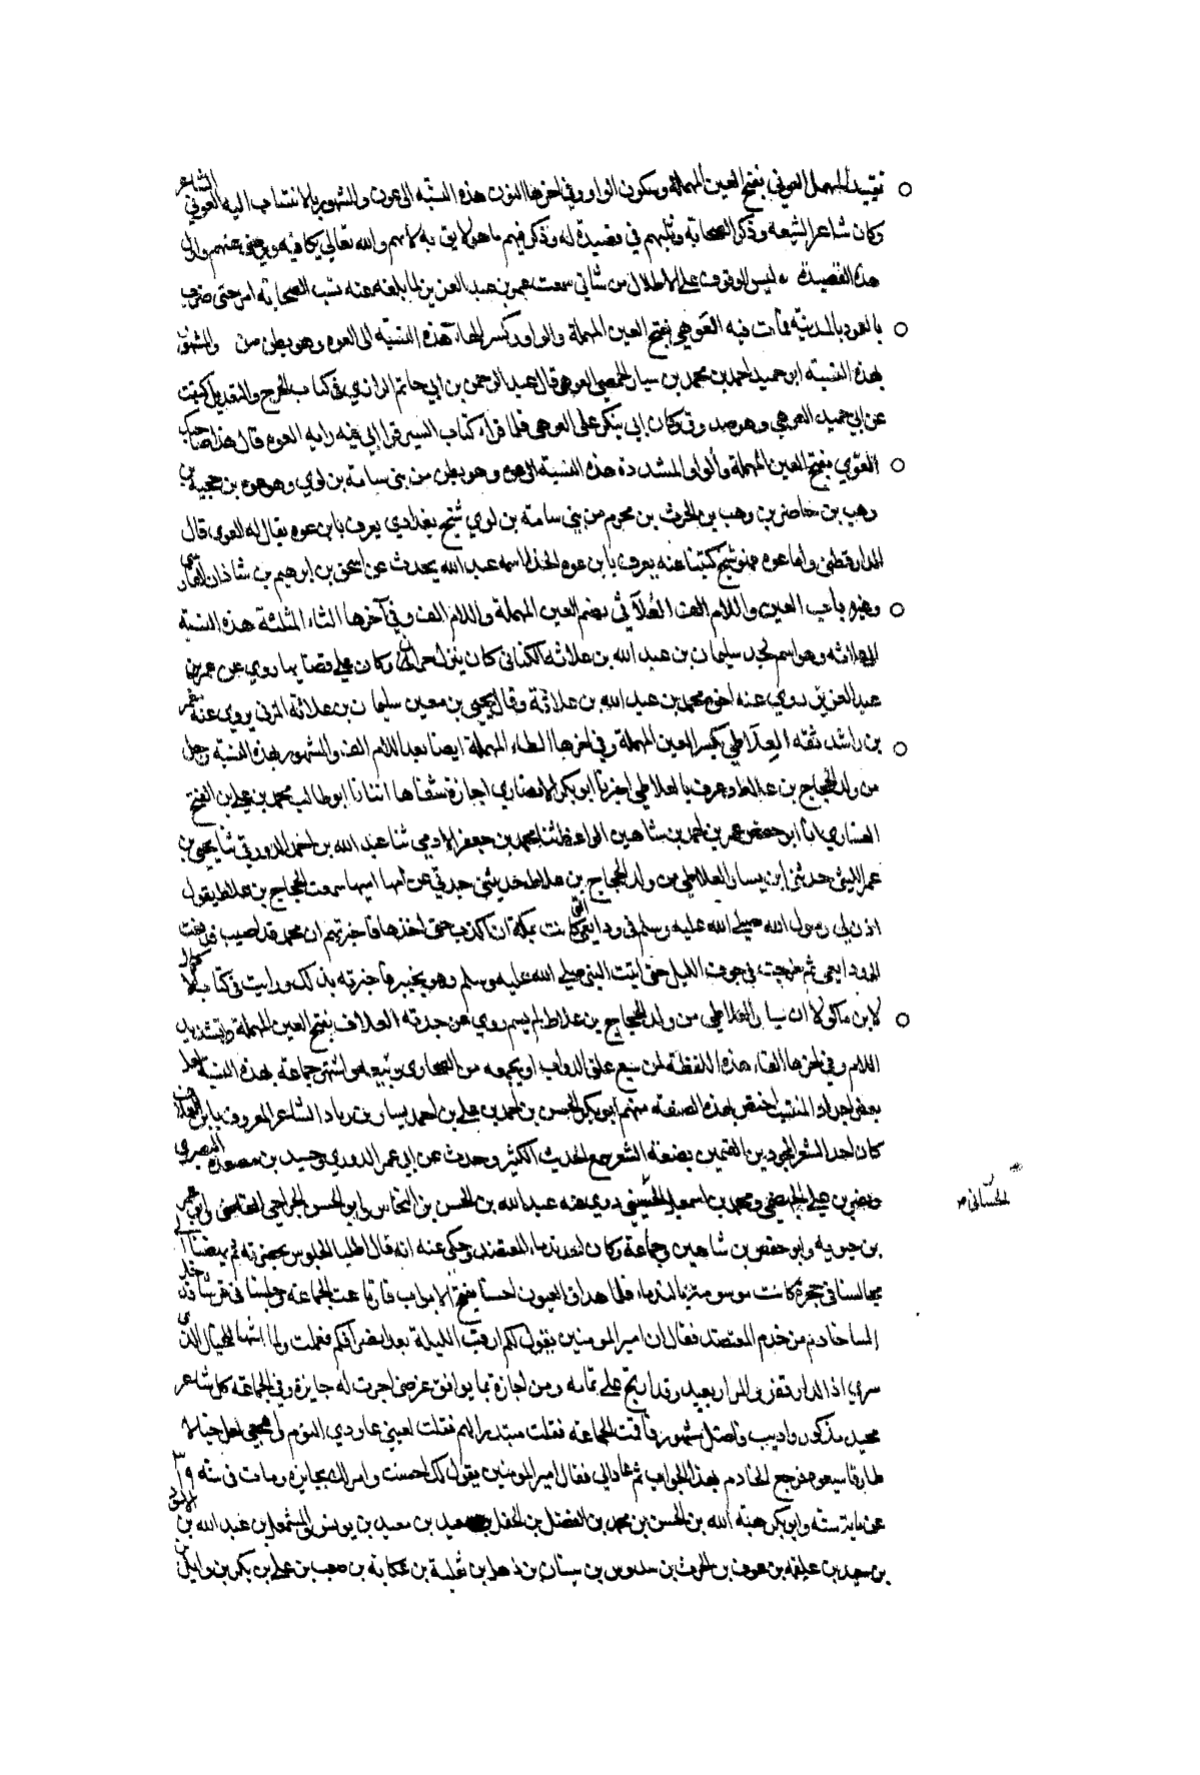 تقييد المهمل العوني بفتح العين المهملة وسكون الواو وفي اخرها النون هذه النسبة الى عون والمشهور بالانتساب اليه العوني الشاعر
وكان شاعر الشيعة وذكر الصحابة وثلبهم في قصيدة له وذكر فيهم ما هو لايق به لا بهم والله تعالى يكافيه عنهم واول
هذه القصيدة ليس الوقوف على الاطلال من شاني سمعت عمر بن عبد العزيز لما بلغه عنه سب الصحابة امر حتى ضرب
بالعود بالمدينة فمات فيه العَوَهي بفتح العين المهملة والواو وكسر الهاء هذه النسبة الى العوه وهو بطن من والمشهور
بهذه النسبة ابو حميد احمد بن محمد بن سيار الحمصي العوهي قال عبد الرحمن بن ابي حاتم الرازي في كتاب الجرح والتعديل كتبت
عن ابي حميد العوهي وهو صدوق وكان ابي على العوهي فلما قراء كتاب السير قرا ابي فيه راية العوه قال هذا صاحبك
العوّي بفتح العين المهملة والواو المشددة هذه النسبة الى عوه وهو بطن من بني سامة بن لوي وهو عوه بن حجية بن
وهب بن حاضر بن وهب بن الحرث بن مجزم من بني سامة بن لوي شيخ بغدادي يعرف بابن عوه يقال له العوي قال
الدارقطني واما عوه فهو شيخ كتبنا عنه يعرف بابن عوه الحذا اسمه عبد الله يحدث عن اسحق بن ابرهيم بن شاذان الفارسي
وغيره باب العين واللام الف العُلاَثي بضم العين المهملة واللام الف وفي آخرها الثاء المثلثة هذه النسبة
الى علاثه وهو اسم لجد سليمان بن عبد الله بن علاثه الكناني كان ينزل حران وكان على قضايها روي عن عمر بن
عبد العزيز روي عنه اخوه محمد بن عبد الله بن علاثة وقال يحيى بن معين سليمان بن علاثة الرقي يروي عنه معمر
بن راشد ثقه العِلاَطي بكسر العين المهملة وفي اخرها الطاء المهملة ايضا بعد اللام الف والمشهور بهذه النسبة رجل
من ولد الحجاج بن علاط يعرف بالعلاطي اخبرنا ابو بكر الانصاري اجازة شفاها انبانا ابو طالب محمد بن علي بن الفتح
العشاري انا ابو حفص عمر بن احمد بن شاهين الواعظ ثنا محمد بن جعفر الادمي ثنا عبد الله بن احمد الدورقي ثنا يحيى بن
عمر الليثي حدثني ابن يسار العلاطي من ولد الحجاج بن علاط حدثتني جدتي عن امها ابيها سمعت الحجاج بن علاط يقول
اذن لي رسول الله صلى الله عليه وسلم في ودايعي التي كانت بمكة ان اكذب حتى اخذها فاخبرتهم ان محمد قد اصيب فدفعت
الي ودايعي ثم خرجت في جوف الليل حتى اتيت النبي صلى الله عليه وسلم وهو بخيبر فاخبرته بذلك ورايت في كتاب الاكمال
لابن ماكولا ان سيار العلاطي من ولد الحجاج بن علاط لم يسم روي عن جدته العلاف بفتح العين المهملة وتشديد
اللام وفي اخرها الفاء هذه اللفظة لمن يبيع علف الدواب او يجمعه من الصحاري ويبيعه واشتهر جماعة بهذه النسبة ولعل
بعض اجداد المنتسب اختص بهذه الصفة منهم ابو بكر الحسن بن احمد بن علي بن احمد بسار بن زياد الشاعر المعروف بابن العلاف
كان احد الشعر المجودين القيمين بصنعة الشعر سمع الحديث الكثير وحدث عن ابي عمر الدوري وحميد بن مسعدة البصري
ونصر بن علي الجهضمي ومحمد بن اسمعيل الحسّيني روي عنه عبد الله بن الحسن بن النخاس وابو الحسن الجراحي القاضي وابو عمر
الحسّاني صح
بن حيويه وابو حفص بن شاهين وجماعة وكان احد ندماء المعتضد وحكى عنه انه قال اطلنا الجلوس بحضرته ثم نهضنا الى
مجالسنا في حجرة كانت موسومة بالندماء فلما هدات العيون احسسنا بفتح الابواب فارتاعت الجماعة وجلسنا في فرشنا فدخل
الينا خادم من خدم المعتضد فقال ان امير المومنين يقول لكم ارقت الليلة بعد انصرافكم فعملت ولما انتبهنا للخيال الذي
سري اذا الدار قفرى والمزار بعيد وقد ارتج علي تمامه ومن اجازة بما يوافق غرضي اجزت له جايزة وفي الجماعة كل شاعر
مجيد مذكور واديب فاضل مشهور فاقمت الجماعة فقلت مبتدرا لهم فقلت لعيني عاودي النوم واهجعي لعل خيالا
طارقا سيعود فرجع الخادم بهذا الجواب ثم عاد الي فقال امير المومنين يقول لك احسنت وامر لك بجايزه ومات في سنه ٣١٩
عن ماية سنه وابو بكر هبة الله بن الحسن بن محمد بن الفضل بن سعيد بن سعيد بن يونس بن الشمعل بن عبد الله بن الاسود
بن سعيد بن علقمه بن عوف بن الحرث بن سدوس بن سنان بن ذهل بن ثعلبة بن عكابة بن صعب بن علي بن بكر بن وايل بن